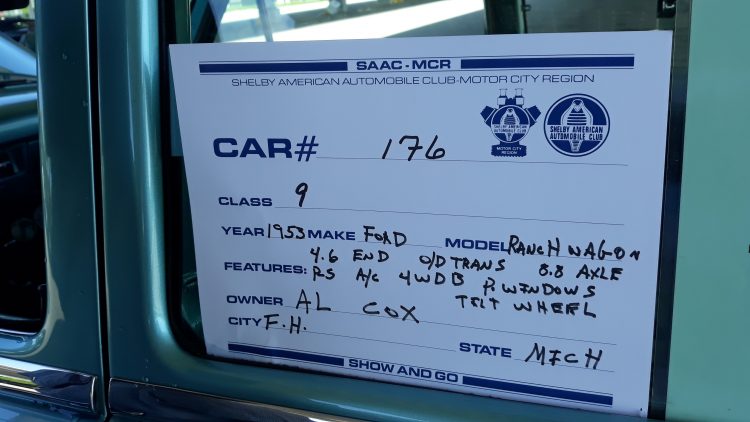 SAAC-MCR
SHELBY AMERICAN AUTOMOBILE CLUB-MOTOR CITY REGION
SHELBY AMERICAN
AUTOMOBILE CLUB
MOTOR CITY
REGION
SHELBY AMERICAN
AUTOMOBILE CLUB
CAR# 176
CLASS 9
YEAR 1953 MAKE FORD MODEL RANCH WAGON
4.6 END O/D TRANS 8.8 AXLE
FEATURES: PS A/C 4WDB P. WINDOWS
TILT WHEEL
OWNER AL COX
CITY F.H. STATE MICH
SHOW AND GO